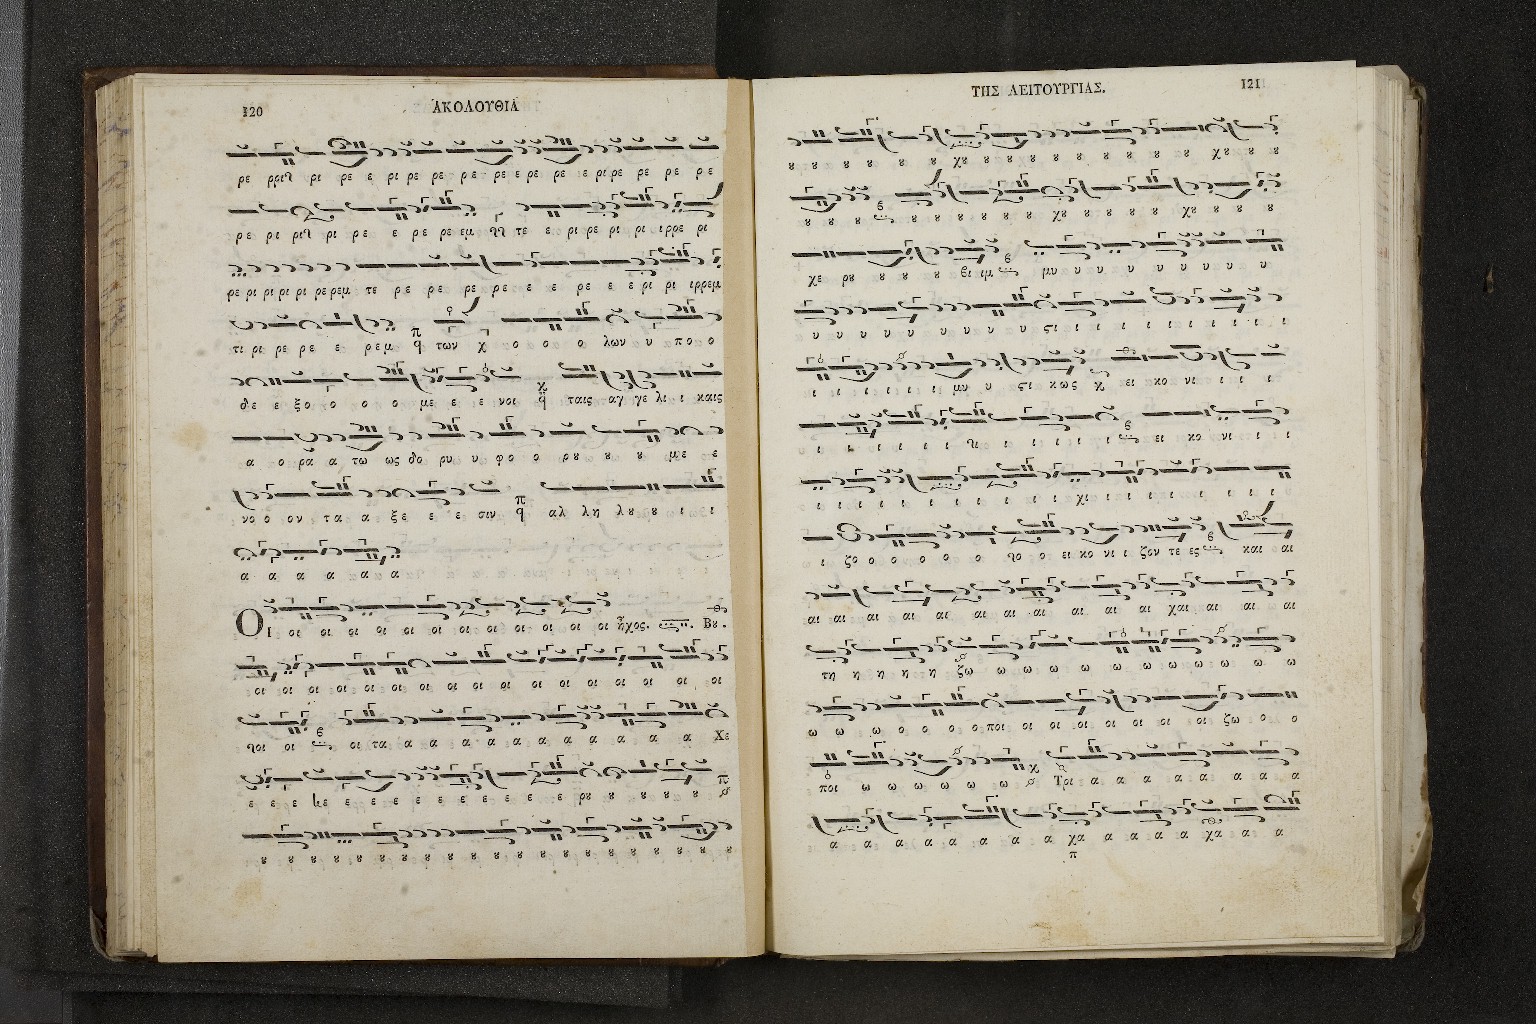 120 ΑΚΟΛΟΥΘΙΑ
ρε ρρισ ρι ρε ε ρι ρε ρε ρε ρε ε ρε ρε ε ρι ρε ρε ρε ρε
ρε ρι ρισ ρι ρε ε ρε ρε εμ τε ε ρι ρε ρι ρι ιρρε ρι
ρε ρι ρι ρι ρι ρε ρεμ τε ρε ρε ρε ρε ε ε ρε ε ε ρι ρι ιρρεμ
τι ρι ρε ρε ε ρεμ των ο ο ο λων υ πο ο
δε ε ξο ο ο ο με ε ε νοι ταις αγ γε λι ι καις
α ο ρα α τω ως δο ρυ υ φο ο ρȣ ȣ ȣ με ε
νο ο ον τα α ξε ε ε σιν αλ λη λȣ ȣ ι ι
α α α α α α
Οι οι οι οι οι οι οι οι οι οι οι οι οι ἦχος. Βȣ.
οι οι οι οι οι οι οι οι οι οι οι οι οι οι οι οι
οι οι τα α α α α α α α α α α α Χε
ε ε ε χε ε ε ε ε ε ε ε ε ε ρȣ ȣ ȣ ȣ ȣ
ȣ ȣ ȣ ȣ ȣ ȣ ȣ ȣ ȣ ȣ ȣ ȣ ȣ ȣ ȣ ȣ ȣ ȣ
ΤΗΣ ΛΕΙΤΟΥΡΓΙΑΣ. 121
ȣ ȣ ȣ ȣ ȣ ȣ χȣ ȣ ȣ ȣ ȣ ȣ ȣ ȣ ȣ ȣ χȣ ȣ ȣ
ȣ ȣ ȣ ȣ ȣ ȣ ȣ ȣ ȣ χȣ ȣ ȣ ȣ ȣ χȣ ȣ ȣ ȣ
χε ρȣ ȣ ȣ ȣ βι ιμ μυ υ υ υ υ υ υ υ υ
υ υ υ υ υ υ υ υ υ ςι ι ι ι ι ι ι ι ι ι
ι ι ι ι ι ι μυ υ ςι κως ει κο νι ι ι ι
ι ι ι ι ι ι ι ι ι ι ι ει κο νι ι ι
ι ι ι ι ι ι ι ι ι ι χι ι ι ι ι ι ι ι
ι ζο ο ο ο ο ο ο ο ει κο νι ι ζον τε ες και αι
αι αι αι αι αι αι αι αι αι αι χαι αι αι αι
τη η η η η ζω ω ω ω ω ω ω ω ω ω ω ω
ω ω ω ο ο ο ο ποι οι οι οι οι οι οι οι ζω ο ο
ποι ω ω ω ω ω ω Τρι α α α α α α α α
α α α α α α α α χα α α α α χα α α